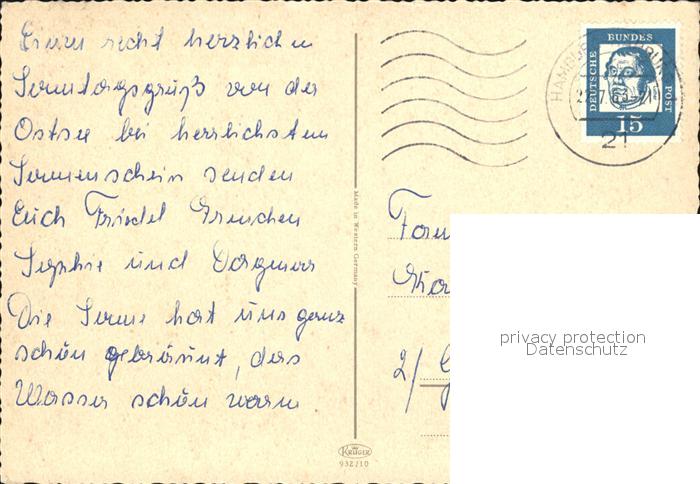 Einen recht herzlichen
Sonntagsgruß von der
Ostsee bei herrlichstem
Sonnenschein senden
Euch Friedel Grauchen
Sophie und Dagmar
Die Sonne hat uns ganz
schön gebräunt, das
Wasser schön warm
Made in Western Germany
KRÜGER
932/10
DEUTSCHE BUNDES POST
15
HAMBURG
21
Fam
2/ G
privacy protection
Datenschutz